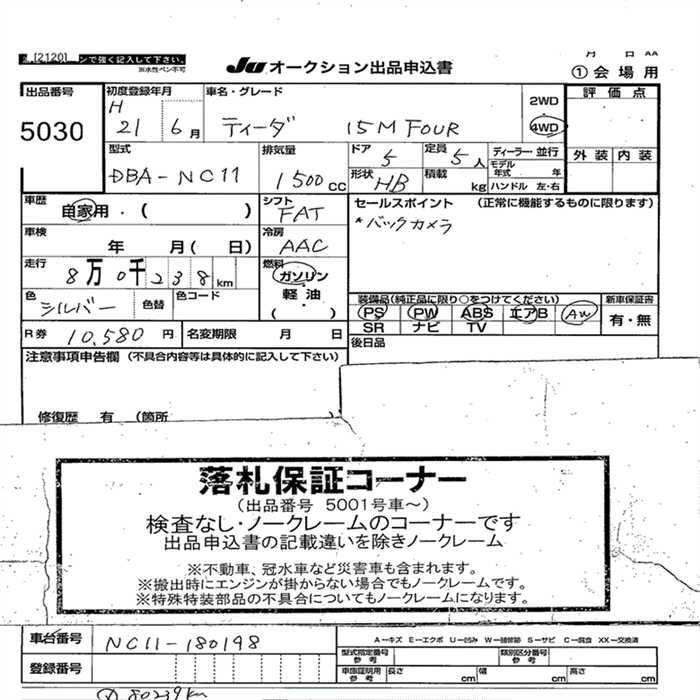 [2120] ンで強く記入して下さい。
※水性ペン不可
JU オークション出品申込書
月 日 AA
①会場用
出品番号 5030
初度登録年月 H 21 6月
車名・グレード ティーダ 15M FOUR
2WD
4WD
評価点
外装 内装
型式 DBA-NC11
排気量 1500cc
ドア 5
定員 5人
ディーラー・並行
形状 HB
積載 kg
モデル年式 年
ハンドル 左・右
車歴 自家用・( )
シフト FAT
セールスポイント (正常に機能するものに限ります)
*バックカメラ
車検 年 月( 日)
冷房 AAC
走行 8万0千238km
燃料 ガソリン
軽油
( )
色 シルバー 色替
色コード
装備品(純正品に限り○をつけてください)
新車保証書
PS PW ABS エアB AW
SR ナビ TV
有・無
R券 10,580円
名変期限 月 日
後日品
注意事項申告欄 (不具合内容等は具体的に記入して下さい)
修復歴 有 (箇所 )
落札保証コーナー
(出品番号 5001号車~)
検査なし・ノークレームのコーナーです
出品申込書の記載違いを除きノークレーム
※不動車、冠水車など災害車も含まれます。
※搬出時にエンジンが掛からない場合でもノークレームです。
※特殊特装部品の不具合についてもノークレームになります。
車台番号 NC11-180198
A-キズ E-エクボ U-凹み W-補修跡 S-サビ C-腐食 XX-交換済
型式指定番号 参考
類別区分番号 参考
登録番号
車庫証明用 参考 長さ cm 幅 cm 高さ cm
80239km